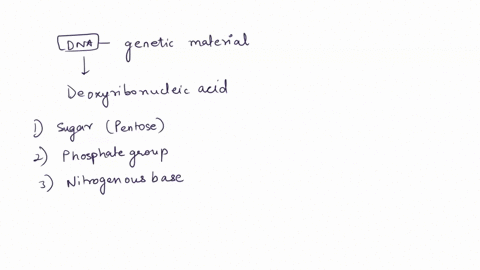 DNA - genetic material
Deoxyribonucleic acid
1) Sugar (Pentose)
2) Phosphate group
3) Nitrogenous base